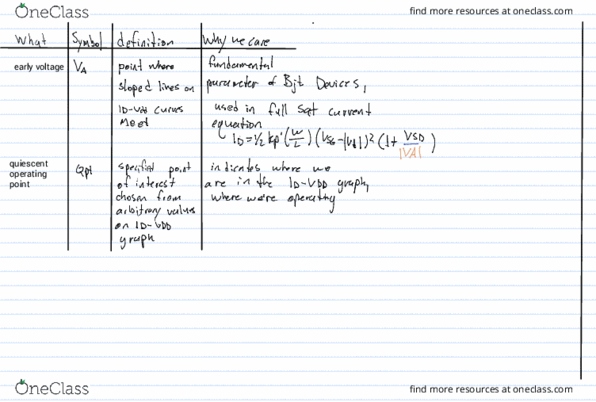 OneClass
find more resources at oneclass.com
What Symbol definition Why we care
early voltage VA point where fundamental
sloped lines on parameter of Bjt Devices,
ID-VDD curves used in full sat current
Meet equation
ID=1/2 kp'(W/L)(VSG-|Vt|)²(1+ VSD/|VA|)
quiescent operating point Qpt specified point indicates where we
of interest are in the ID-VDD graph,
chosen from where we're operating
arbitrary values
on ID-VDD
graph
OneClass
find more resources at oneclass.com